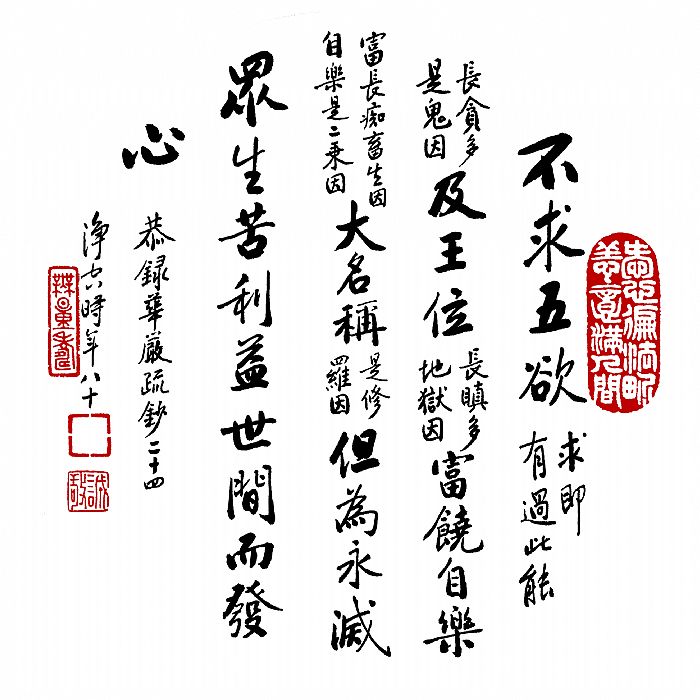 不求五欲
求即
有過此能
長貪多
是鬼因
及王位
長瞋多
地獄因
富饒自樂
富長痴畜生因
自樂是二乘因
大名稱
是修
羅因
但為永滅
眾生苦利益世間而發
心
恭錄華嚴疏鈔二十四
淨空時年八十
善意滿人間
無量壽
誠敬